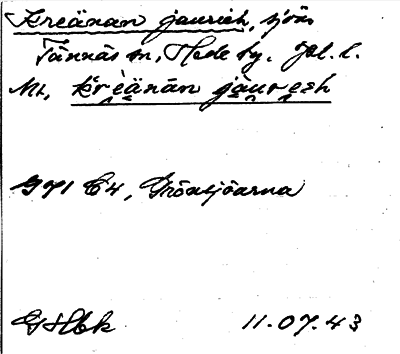 Kreänan jaurieh, sjön
Tännäs sn, Hede tg. Jtl. l.
Mt, kreänän jauresh
G71 C4, Gröasjöarna
G Hbk 11.07.43